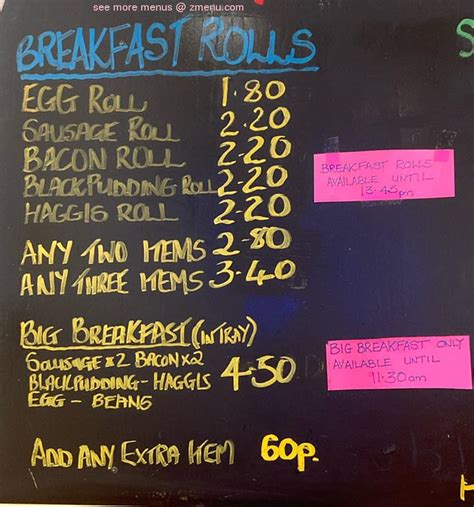 see more menus @ zmenu.com
BREAKFAST ROLLS
EGG ROLL 1.80
SAUSAGE ROLL 2.20
BACON ROLL 2.20
BLACKPUDDING ROLL 2.20
HAGGIS ROLL 2.20
ANY TWO ITEMS 2-80
ANY THREE ITEMS 3-40
BREAKFAST ROLLS
AVAILABLE UNTIL
13:45pm
BIG BREAKFAST (IN TRAY)
SAUSAGE x2 BACON x2
BLACKPUDDING - HAGGIS 4-50
EGG - BEANS
BIG BREAKFAST ONLY
AVAILABLE UNTIL
11:30am
ADD ANY EXTRA ITEM 60p.